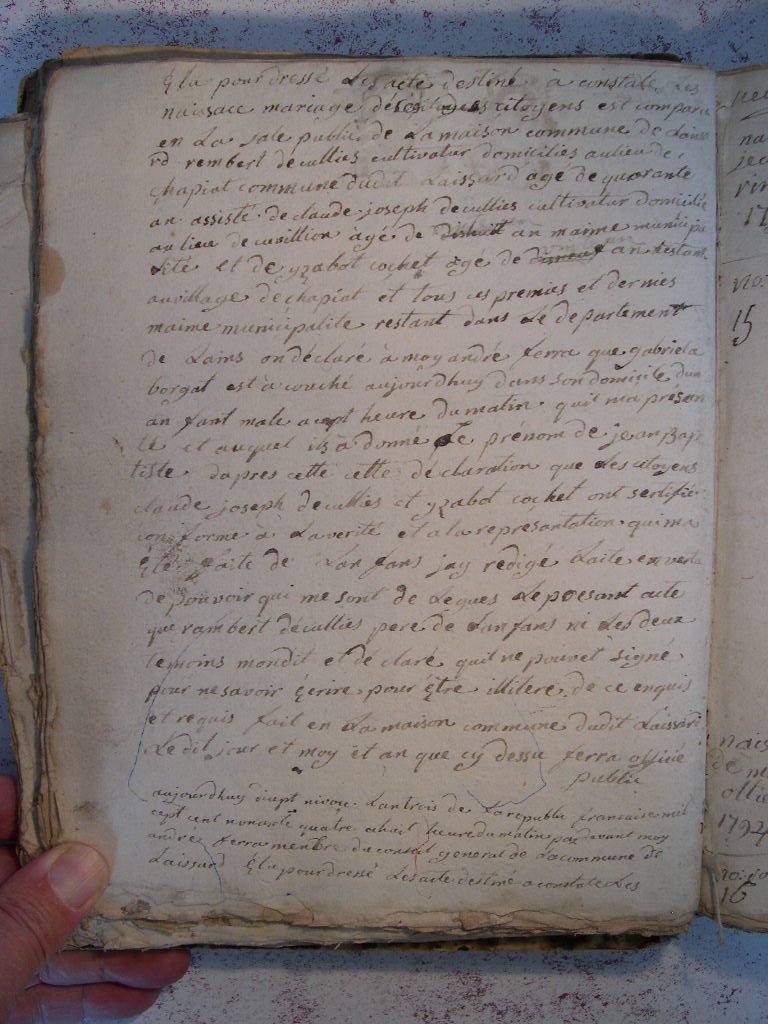 Élu pour dressé Les acte destiné à constate Les
naissace mariage décé citoyens est compar
en La sale public de La maison commune de Laiss
rd rembert décullies cultivatur domicilies au lieu de
chapiat commune dudit Laissard age de quarante
an assisté de claude joseph decullies cultivatur domicilié
au lieu de cuvillion agé de an maime municipa
lité et de yzabot cochet age de an restant
au village de chapiat et tous ces premies et dernies
maime municipalité restant dans Le departement
de Lains on déclaré à moy andré ferra que gabriela
borgat est à couché aujourdhuy dans son domicile dun
an fant male a cept heure du matin quil ma présan
té et auquel ils à donné Le prénom de jean Bap
tiste dapres cette cette déclaration que Les citoyens
claude joseph decullies et yzabot cochet ont sertifié
conforme à La verité et a la represantation qui ma
Été faite de Lan fans jay redigé Laite en vertu
De pouvoir qui me sont de Leques Le presant acte
que rambert décullies pere de Lan fans ni Les deux
temoins mondit et déclaré quil ne pouvet signé
pour ne savoir Écrire pour Être illitere de ce enquis
et requis fait en La maison commune dudit Laissard
Le dit jour et moy et an que cy dessu ferra officié
public
aujourdhuy dicept nivou Lantrois de La republic francaise mil
cept cent nonante quatre a huit heure du matins par devant moy
andré ferra menbre du conseil general de La commune de
Laissard Élu pour dressé Les acte destiné a constate Les
na
17
no:
15
nais
de m
1794
no:
16